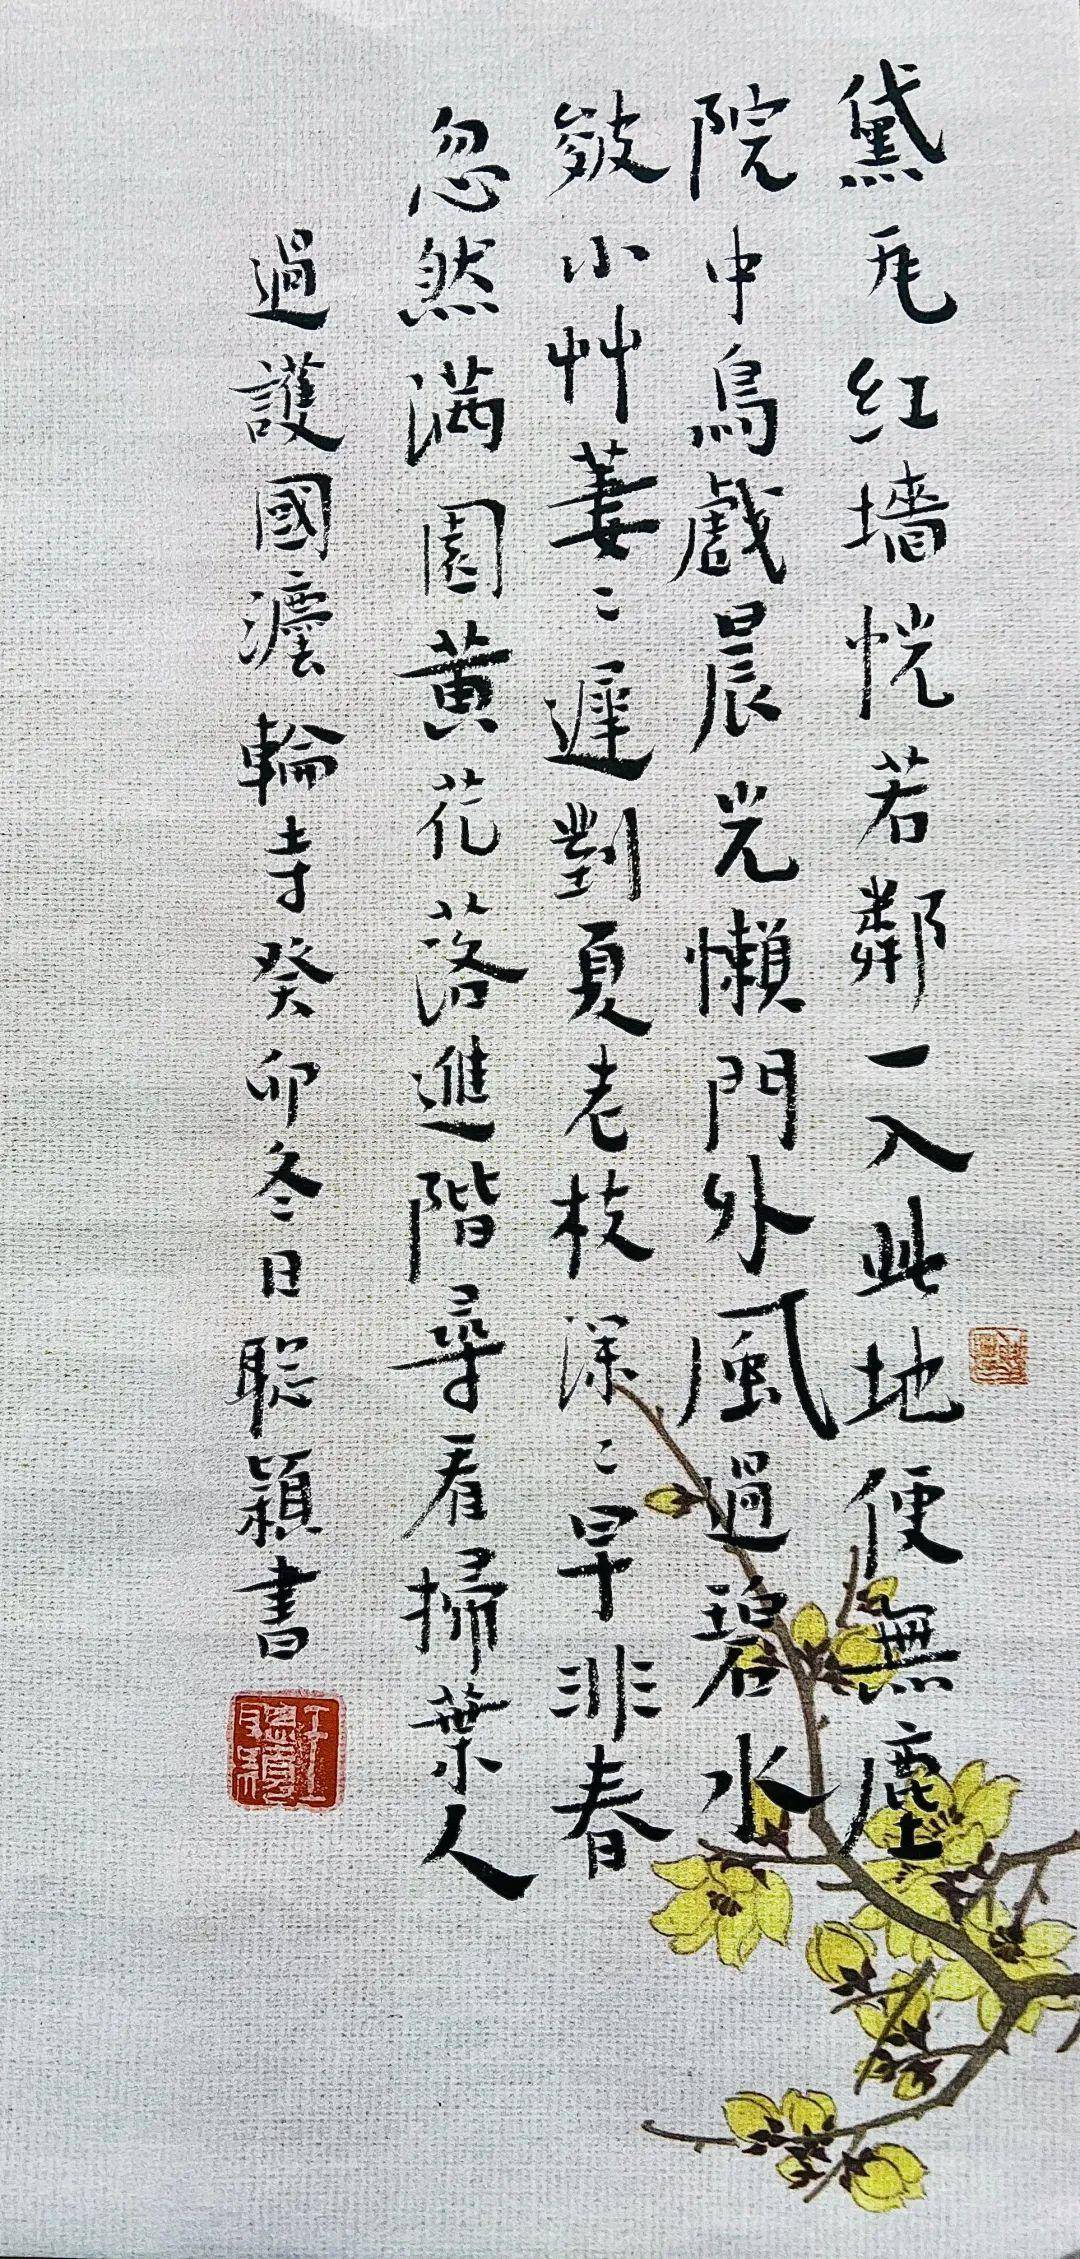 黛瓦红墙恍若鄰一入此地便無塵
院中鳥戲晨光懶門外風過碧水
皴小艸萋〻遲對夏老枝深〻早非春
忽然满園黄花落進階尋看掃葉人
過護國灋輪寺癸卯冬日聪潁書